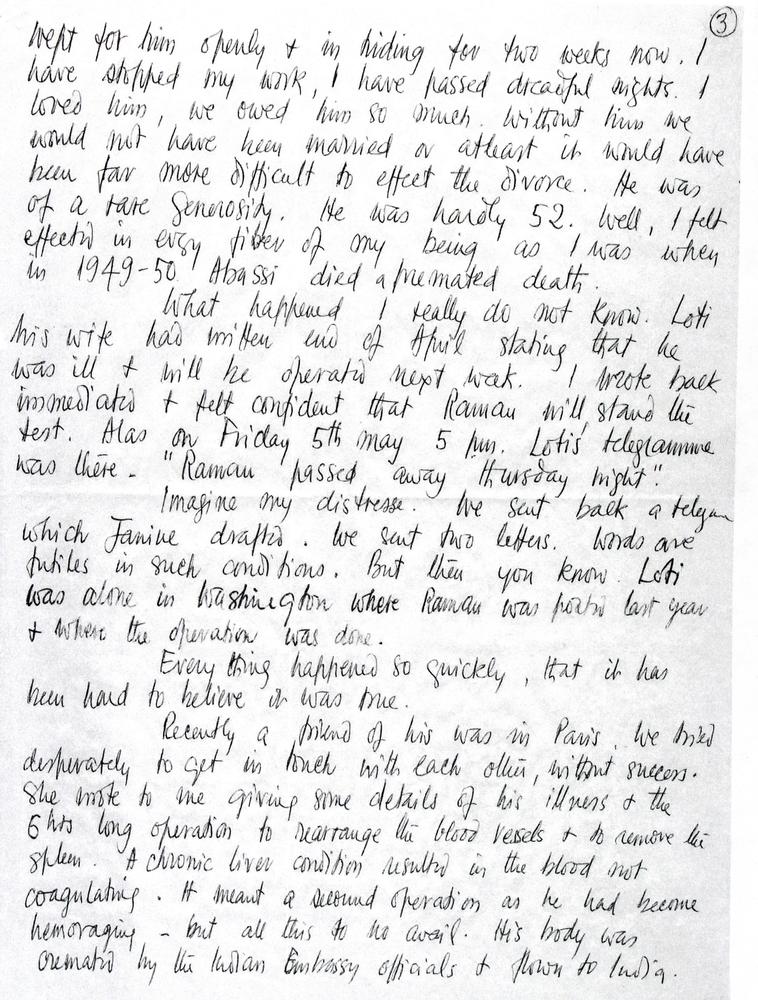 3
wept for him openly & in hiding for two weeks now. I
have stopped my work, I have passed dreadful nights. I
loved him, we owed him so much. Without him we
would not have been married or atleast it would have
been far more difficult to effect the divorce. He was
of a rare generosity. He was hardly 52. Well, I felt
effected in every fiber of my being as I was when
in 1949-50 Abassi died a premated death.
What happened I really do not know. Loti
his wife had written end of April stating that he
was ill & will be operated next week. I wrote back
immediated & felt confident that Raman will stand the
test. Alas on Friday 5th may 5 pm. Lotis' telegramme
was there - "Raman passed away thursday night".
Imagine my distresse. We sent back a telegram
which Janine drafted. We sent two letters. Words are
futiles in such conditions. But then you know. Loti
was alone in Washington where Raman was posted last year
& where the operation was done.
Every thing happened so quickly, that it has
been hard to believe it was true.
Recently a friend of his was in Paris. We tried
desperately to get in touch with each other, without success.
She wrote to me giving some details of his illness & the
6 hrs long operation to rearrange the blood vessels & to remove the
spleen. A chronic liver condition resulted in the blood not
coagulating. It meant a second operation as he had become
hemoraging - but all this to no avail. His body was
cremated by the Indian Embassy officials & flown to India.